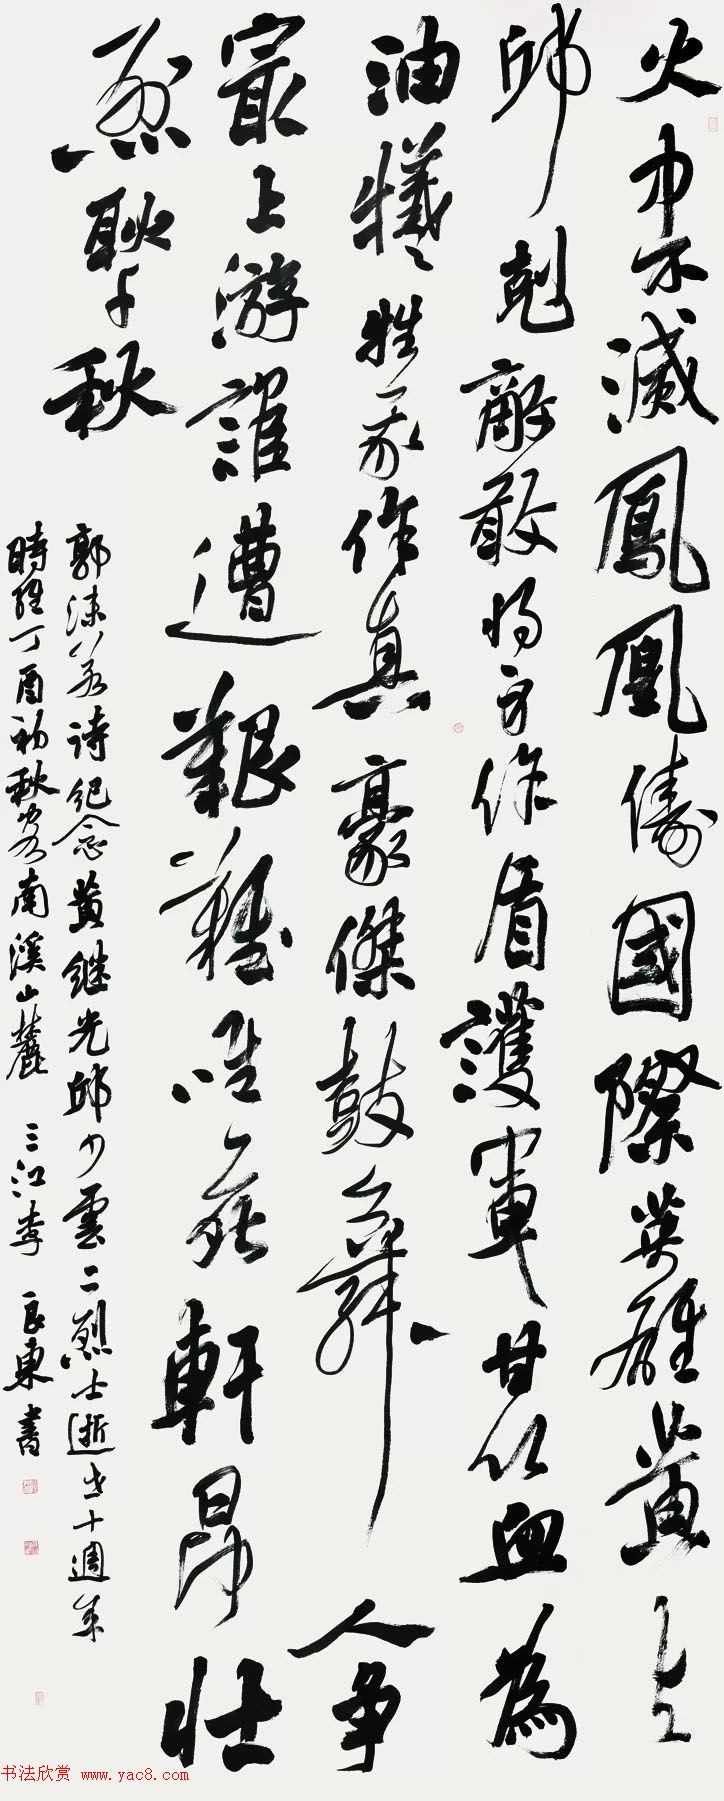 火中不滅鳳凰儔國際英雄黃與
邱尅敵敢將身作盾護軍甘以血為
油犧牲我作真豪傑鼓舞人爭
最上游誰遭艱難唯一死軒昂壯
烈耿千秋
郭沫若詩紀念黃继光邱少雲二烈士逝世十週年
時維丁酉初秋客南溪山麓 三江李良東書
书法欣赏 www.yac8.com